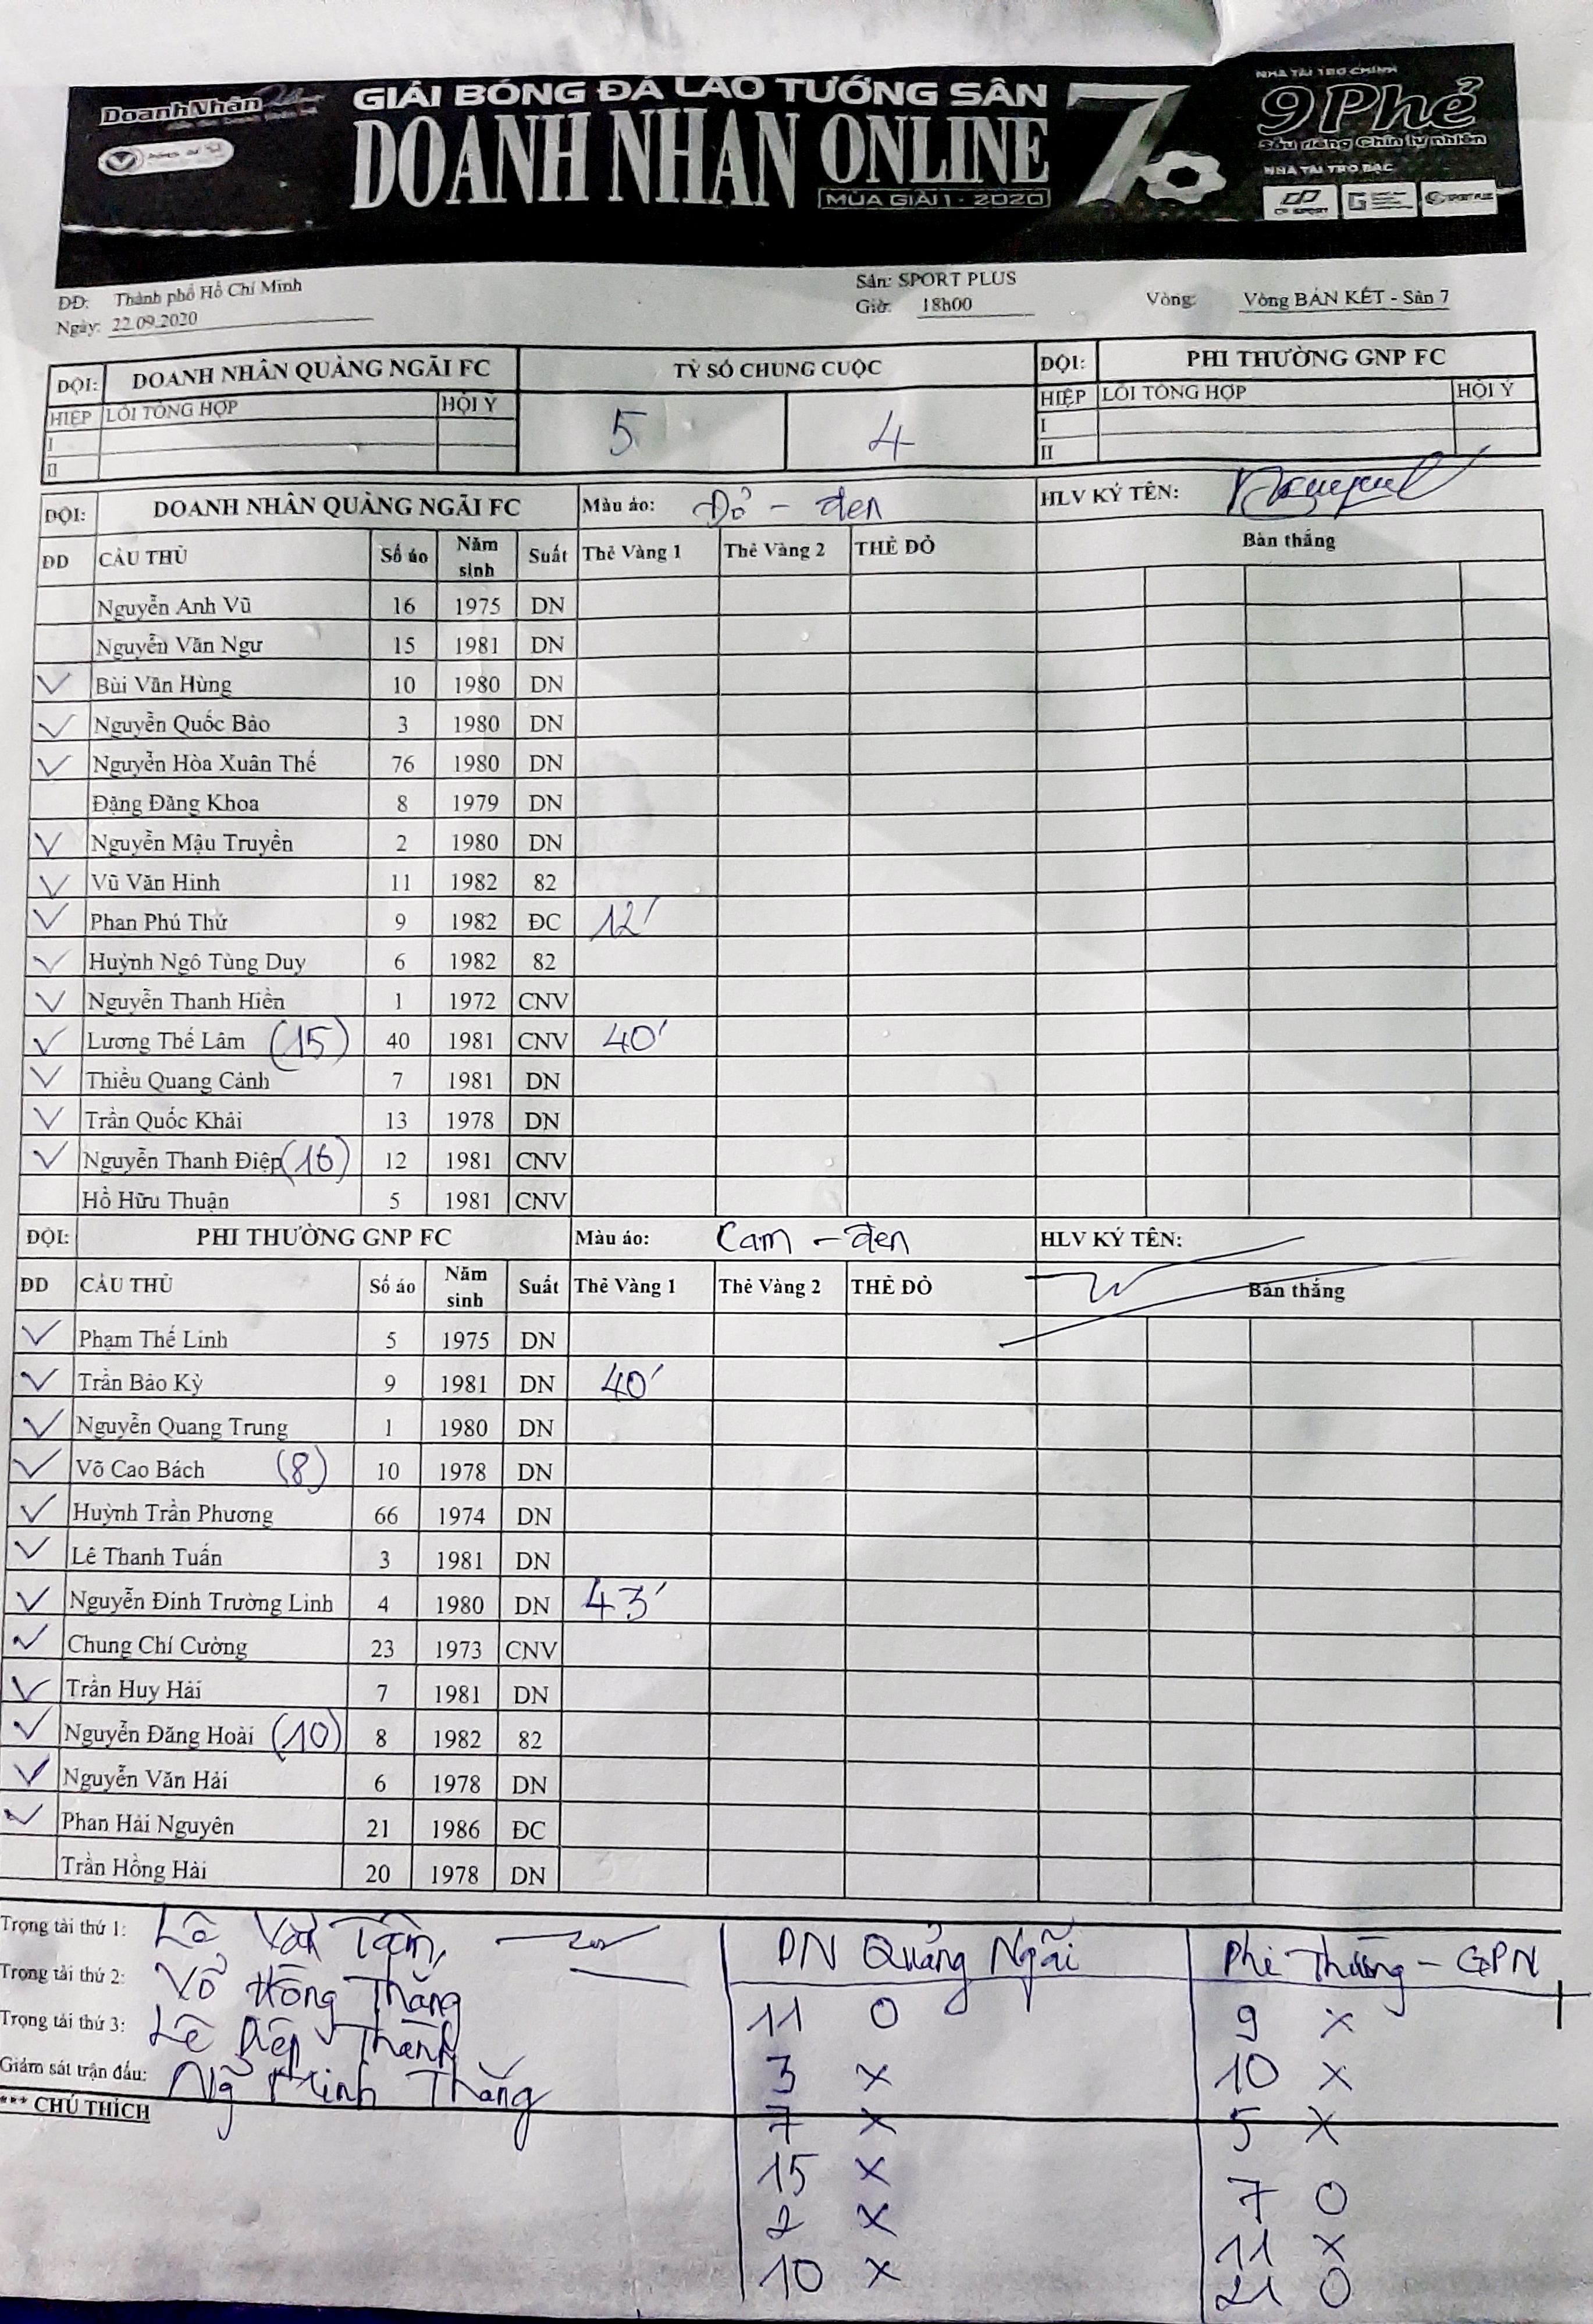 DoanhNhân
GIẢI BÓNG ĐÁ LÃO TƯỚNG SÂN 7
DOANH NHÂN ONLINE
MÙA GIẢI 1 - 2020
NHÀ TÀI TRỢ CHÍNH
9 Phẻ
Sầu riêng Chín tự nhiên
NHÀ TÀI TRỢ BẠC
CP SPORT
ĐĐ: Thành phố Hồ Chí Minh
Ngày: 22.09.2020
Sân: SPORT PLUS
Giờ: 18h00
Vòng: Vòng BÁN KẾT - Sân 7
ĐỘI: DOANH NHÂN QUẢNG NGÃI FC TỶ SỐ CHUNG CUỘC ĐỘI: PHI THƯỜNG GNP FC
HIỆP LỖI TỔNG HỢP HỘI Ý 5 4 HIỆP LỖI TỔNG HỢP HỘI Ý
I I
II II
ĐỘI: DOANH NHÂN QUẢNG NGÃI FC Màu áo: Đỏ - đen HLV KÝ TÊN:
ĐD CẦU THỦ Số áo Năm sinh Suất Thẻ Vàng 1 Thẻ Vàng 2 THẺ ĐỎ Bàn thắng
Nguyễn Anh Vũ 16 1975 DN
Nguyễn Văn Ngư 15 1981 DN
✓ Bùi Văn Hùng 10 1980 DN
✓ Nguyễn Quốc Bảo 3 1980 DN
✓ Nguyễn Hòa Xuân Thế 76 1980 DN
Đặng Đăng Khoa 8 1979 DN
✓ Nguyễn Mậu Truyền 2 1980 DN
✓ Vũ Văn Hinh 11 1982 82
✓ Phan Phú Thứ 9 1982 ĐC 12'
✓ Huỳnh Ngô Tùng Duy 6 1982 82
✓ Nguyễn Thanh Hiền 1 1972 CNV
✓ Lương Thế Lâm (15) 40 1981 CNV 40'
✓ Thiều Quang Cảnh 7 1981 DN
✓ Trần Quốc Khải 13 1978 DN
✓ Nguyễn Thanh Điệp (16) 12 1981 CNV
Hồ Hữu Thuận 5 1981 CNV
ĐỘI: PHI THƯỜNG GNP FC Màu áo: Cam - đen HLV KÝ TÊN:
ĐD CẦU THỦ Số áo Năm sinh Suất Thẻ Vàng 1 Thẻ Vàng 2 THẺ ĐỎ Bàn thắng
✓ Phạm Thế Linh 5 1975 DN
✓ Trần Bảo Kỳ 9 1981 DN 40'
✓ Nguyễn Quang Trung 1 1980 DN
✓ Võ Cao Bách (8) 10 1978 DN
✓ Huỳnh Trần Phương 66 1974 DN
✓ Lê Thanh Tuấn 3 1981 DN
✓ Nguyễn Đinh Trường Linh 4 1980 DN 43'
✓ Chung Chí Cường 23 1973 CNV
✓ Trần Huy Hải 7 1981 DN
✓ Nguyễn Đăng Hoài (10) 8 1982 82
✓ Nguyễn Văn Hải 6 1978 DN
✓ Phan Hải Nguyên 21 1986 ĐC
Trần Hồng Hải 20 1978 DN
Trọng tài thứ 1: Lê Văn Tâm
Trọng tài thứ 2: Võ Hồng Thắng
Trọng tài thứ 3: Lê Diệp Thanh
Giám sát trận đấu: Ng Minh Thắng
*** CHÚ THÍCH
DN Quảng Ngãi Phi Thường - GPN
11 O 9 X
3 X 10 X
7 X 5 X
15 X 7 O
2 X 11 X
10 X 21 O